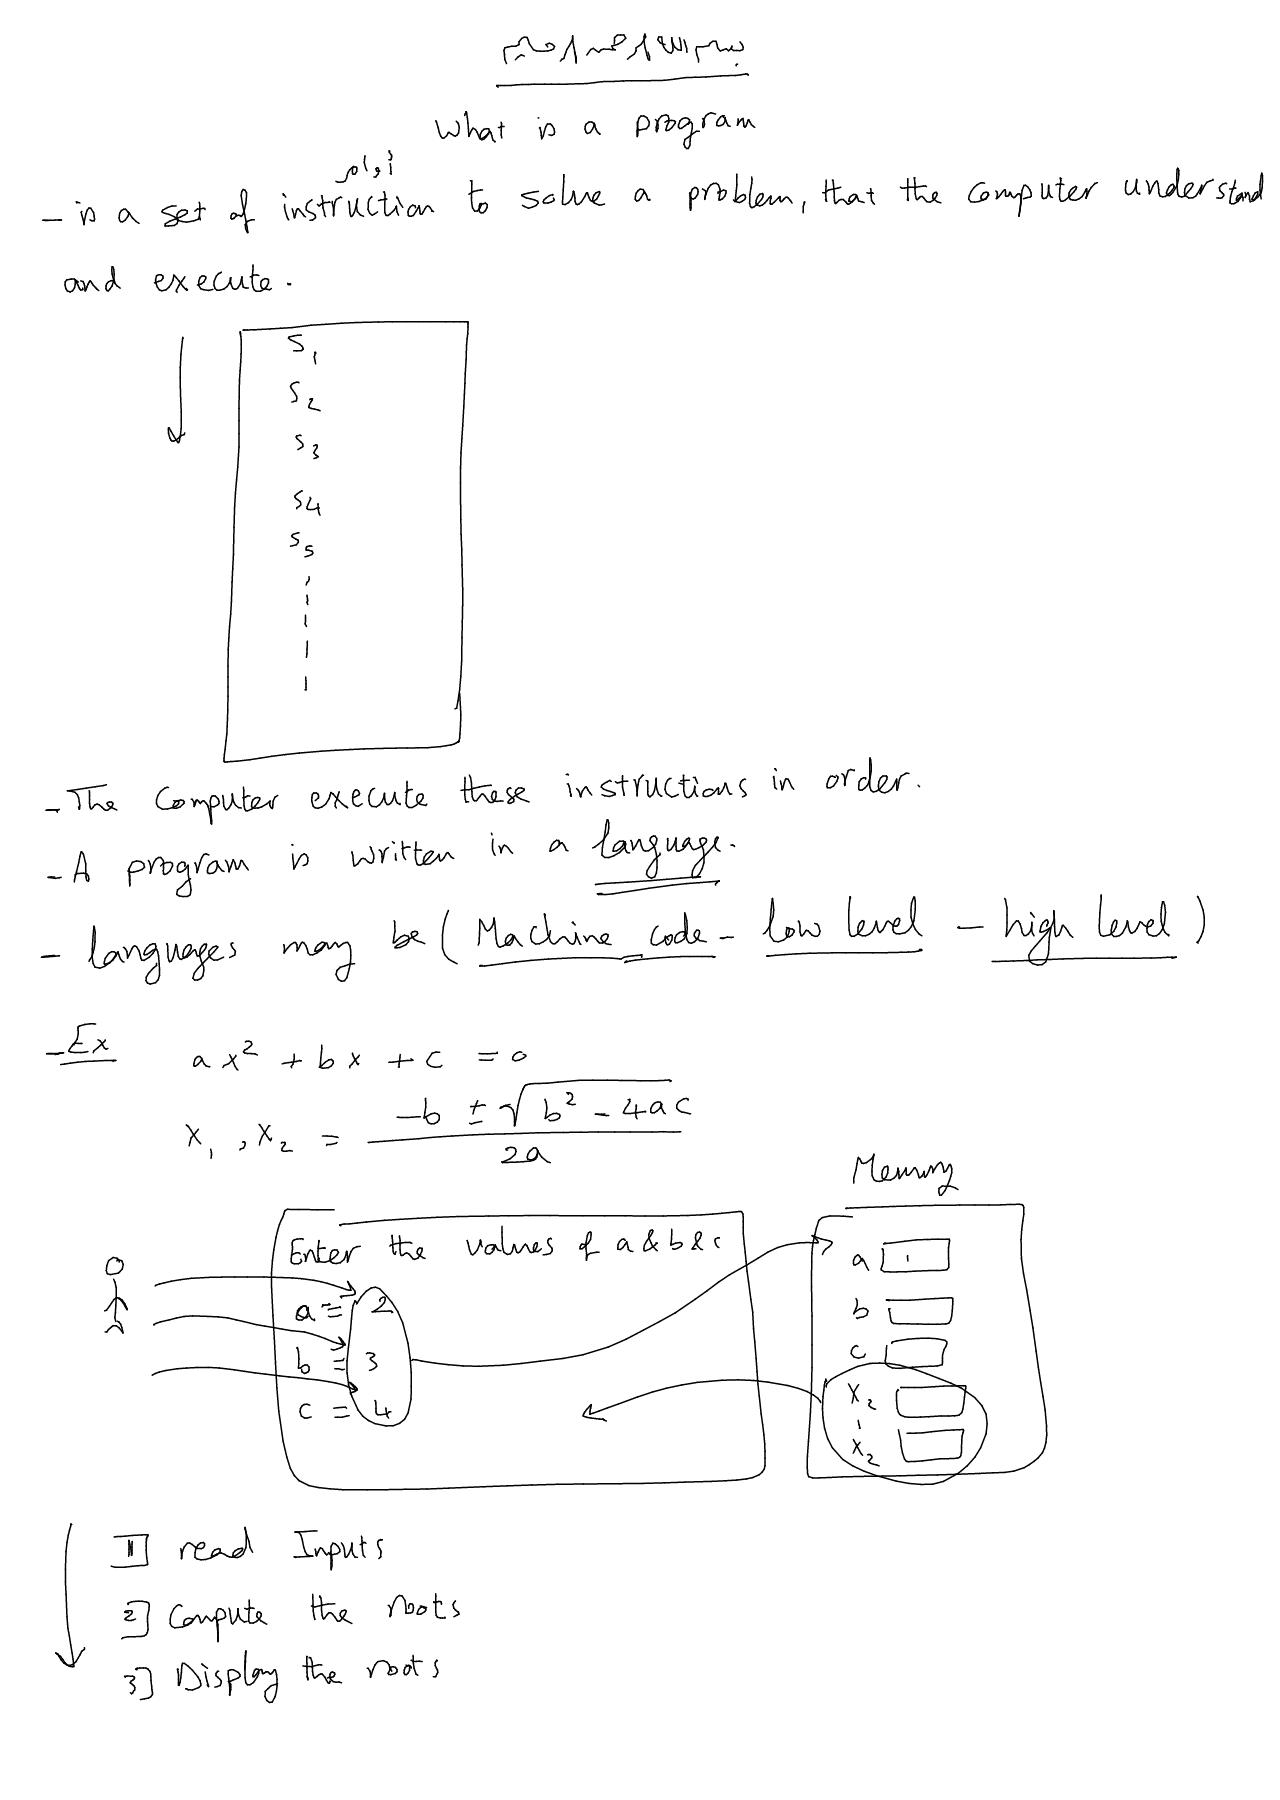 بسم الله الرحمن الرحيم
What is a program
أوامر
- is a set of instruction to solve a problem, that the computer understand
and execute.
S1
S2
S3
S4
S5
- The Computer execute these instructions in order.
- A program is written in a language.
- languages may be ( Machine code - low level - high level )
- Ex
ax² + bx + c = 0
x1 , x2 = (-b ± √(b² - 4ac)) / 2a
Memory
Enter the values of a & b & c
a = 2
b = 3
c = 4
a
b
c
X2
X2
1] read Inputs
2] Compute the roots
3] Display the roots